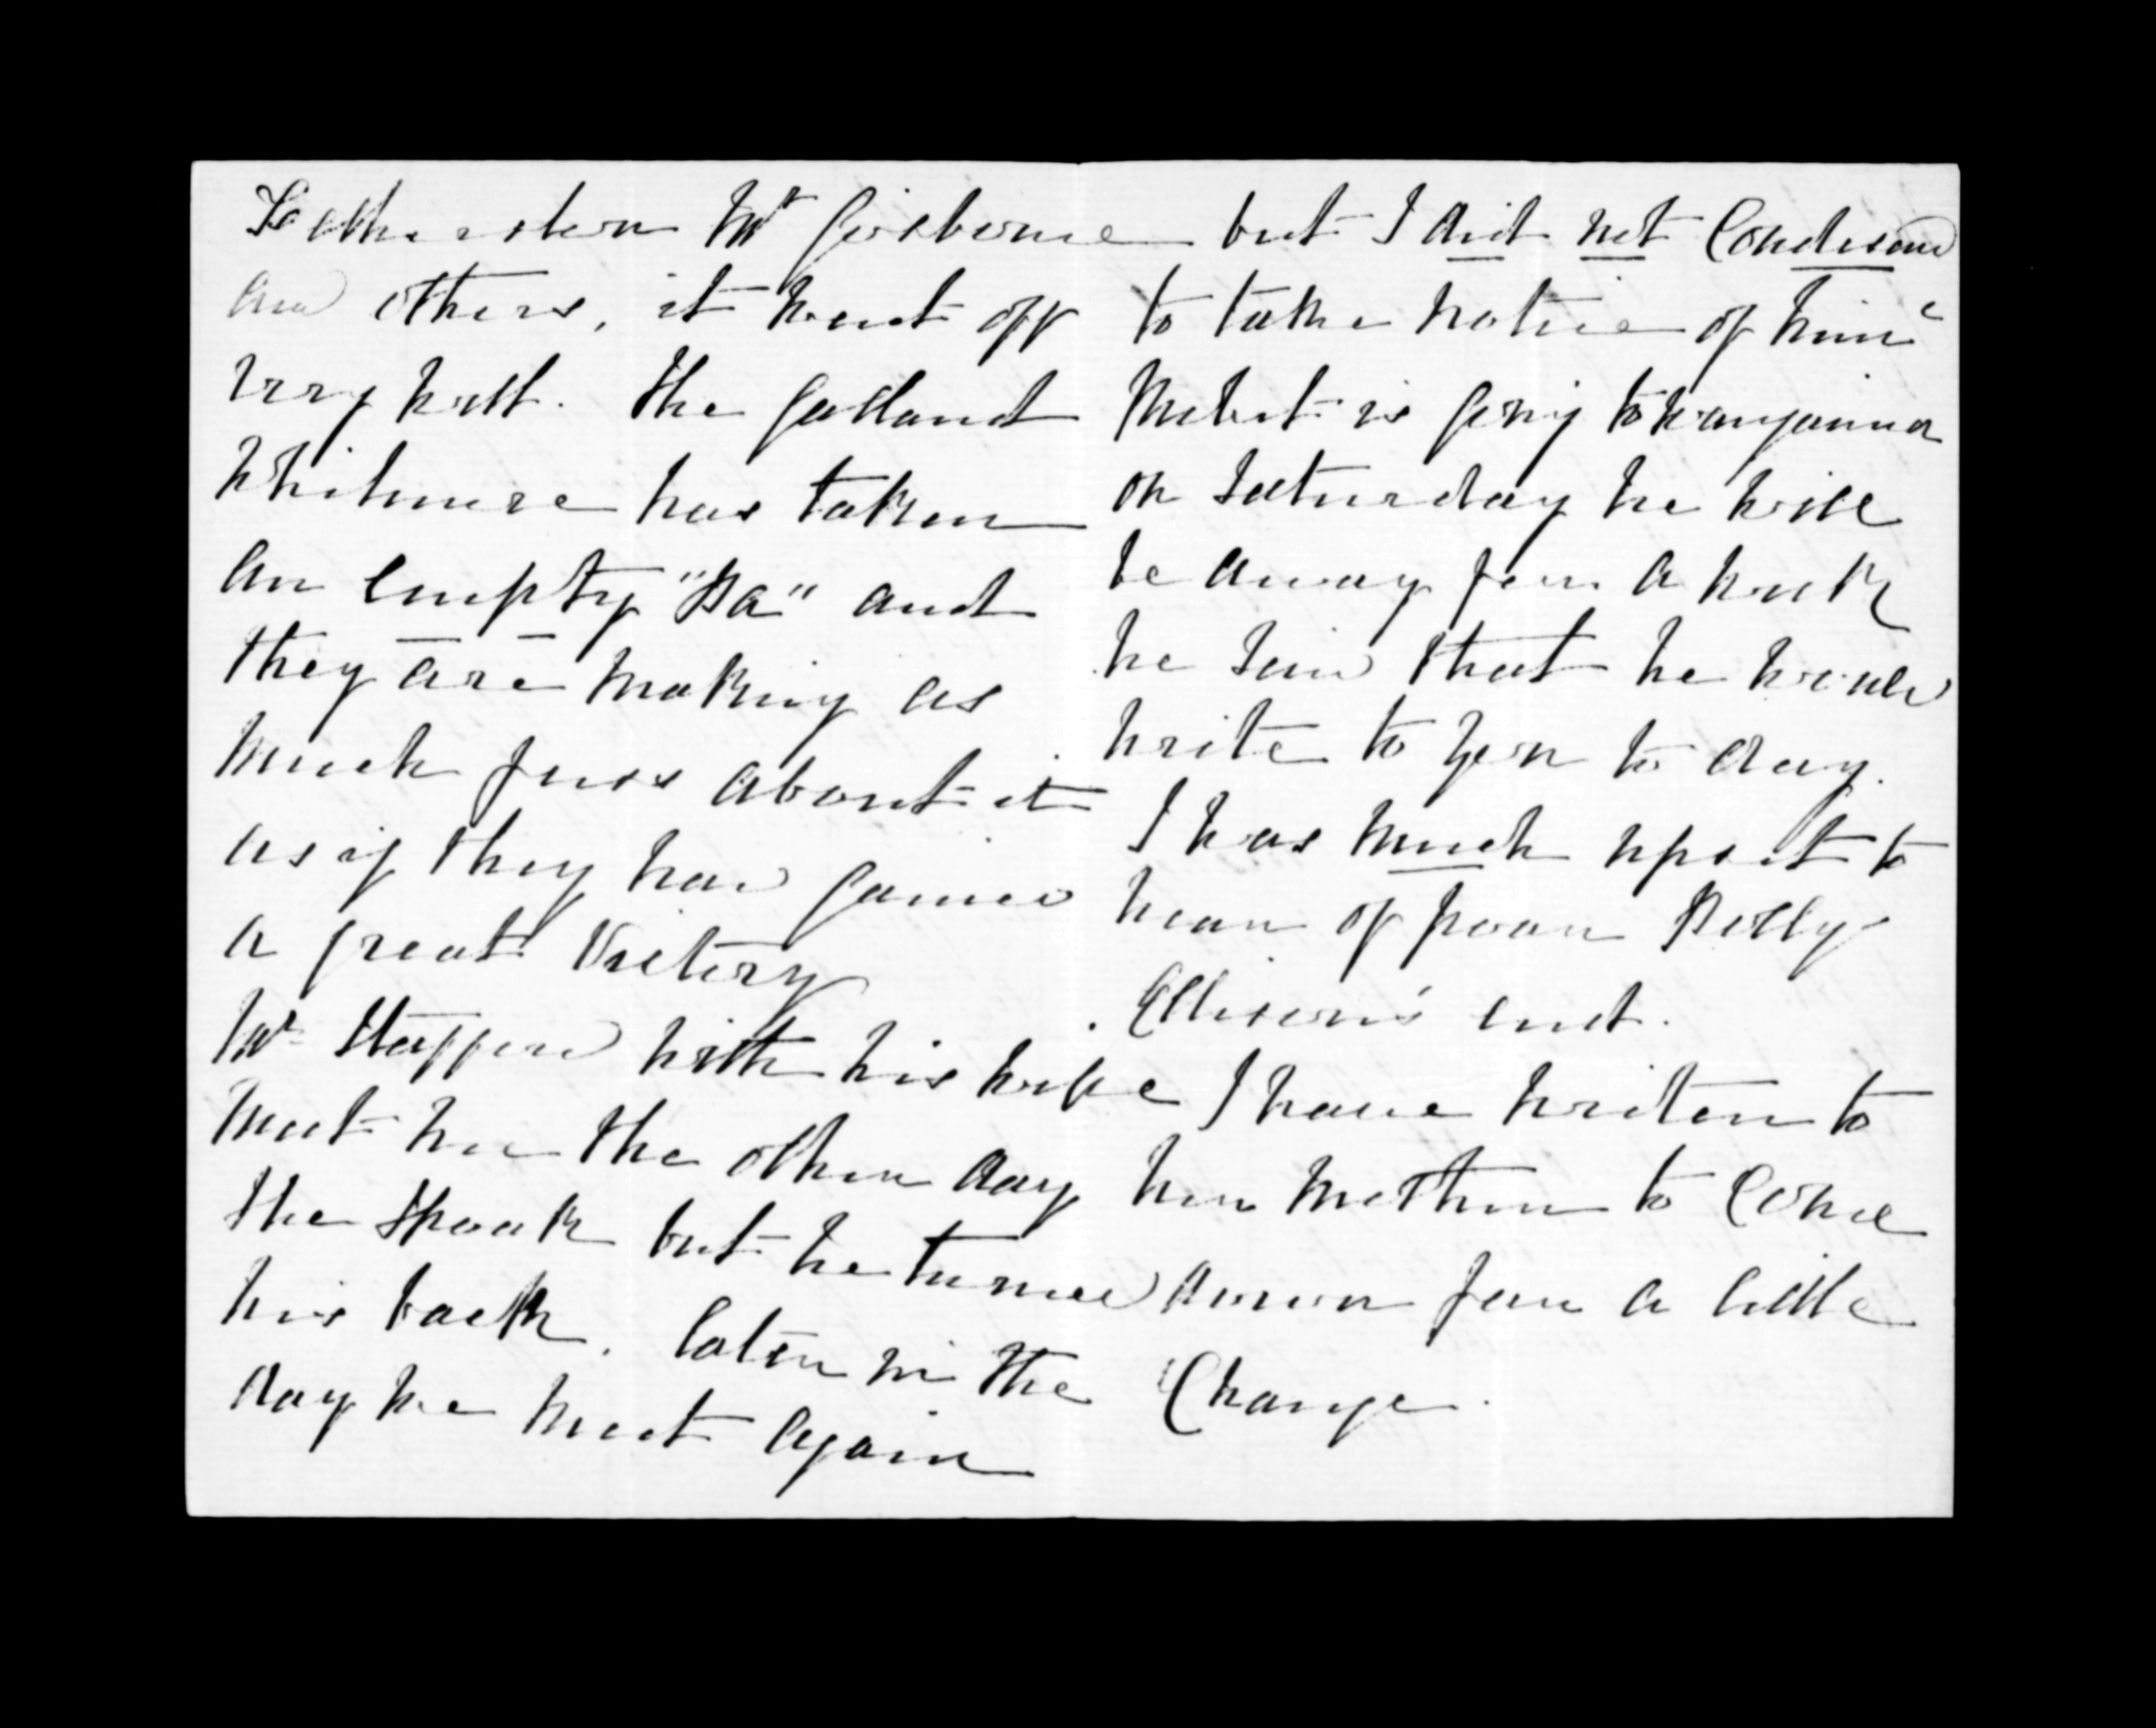 Featherston Mr Gisborne
and others, it went off
very well. The gallant
Whitmore has taken
an empty "Pa" and
they are making as
much fuss about it
as if they had gained
a great Victory
Mr Stafford with his wife
meet me the other day
the Speak but he turned
his back. Later in the
day he meet again
but I did not Condecend
to take notice of him
is going to Wanganui
on Saturday he will
be away for a week
he said that he would
write to you to day.
I was much upset to
hear of poor Polly
Ellison's end.
I have writen to
her mother to Come
down for a little
Change.